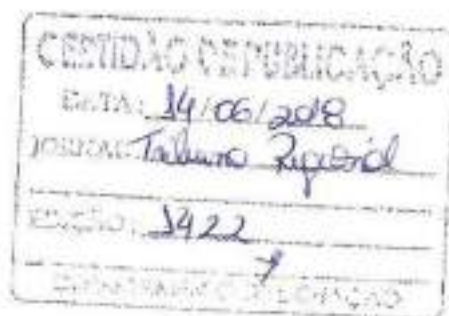 CERTIDÃO DE PUBLICAÇÃO
DATA: 14/06/2018
JORNAL: Tribuna Regional
EDIÇÃO: 1422